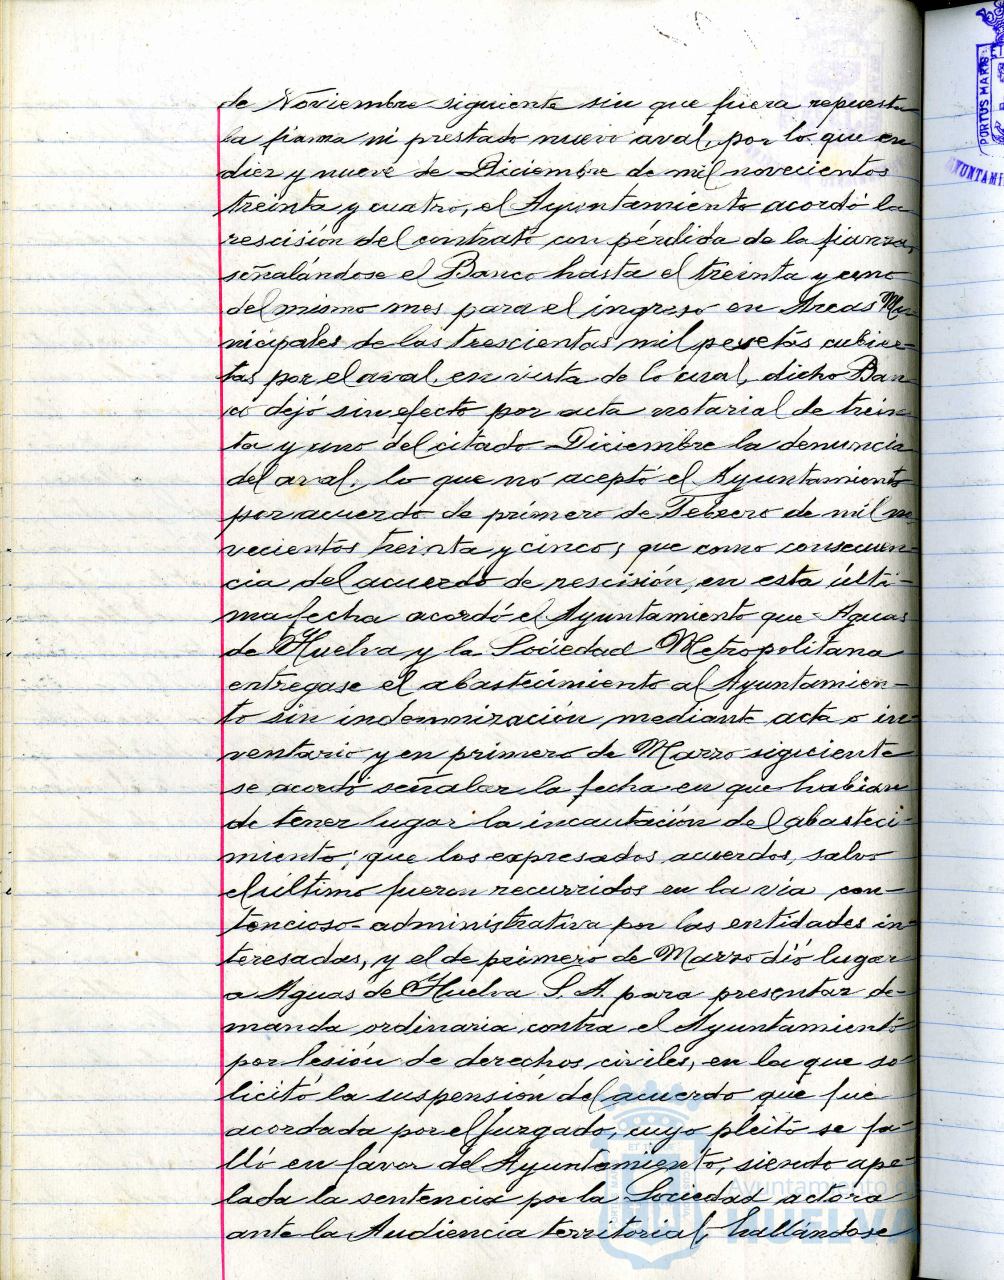 de Noviembre siguiente sin que fuera repuesta
la fianza ni prestado nuevo aval, por lo que en
diez y nueve de Diciembre de mil novecientos
treinta y cuatro, el Ayuntamiento acordó la
rescisión del contrato con pérdida de la fianza,
señalándose el Banco hasta el treinta y uno
del mismo mes para el ingreso en Arcas Mu-
nicipales de las trescientas mil pesetas cubier-
tas por el aval, en vista de lo cual, dicho Ban-
co dejó sin efecto por acta notarial de trein-
ta y uno del citado Diciembre la denuncia
del aval, lo que no aceptó el Ayuntamiento
por acuerdo de primero de Febrero de mil no-
vecientos treinta y cinco; que como consecuen-
cia del acuerdo de rescisión, en esta últi-
ma fecha acordó el Ayuntamiento que Aguas
de Huelva y la Sociedad Metropolitana
entregase el abastecimiento al Ayuntamien-
to sin indemnización mediante acta o in-
ventario y en primero de Marzo siguiente
se acordó señalar la fecha en que habian
de tener lugar la incautación del abasteci-
miento; que los expresados acuerdos, salvo
el último fueron recurridos en la via con-
tencioso-administrativa por las entidades in-
teresadas, y el de primero de Marzo dió lugar
a Aguas de Huelva S. A. para presentar de-
manda ordinaria contra el Ayuntamiento
por lesión de derechos civiles, en la que so-
licitó la suspensión del acuerdo que fue
acordada por el Juzgado, cuyo pleito se fa-
lló en favor del Ayuntamiento, siendo ape-
lada la sentencia por la Sociedad actora
ante la Audiencia territorial, hallándose
PORTUS MARIS
AYUNTAMI
Ayuntamiento de
HUELVA